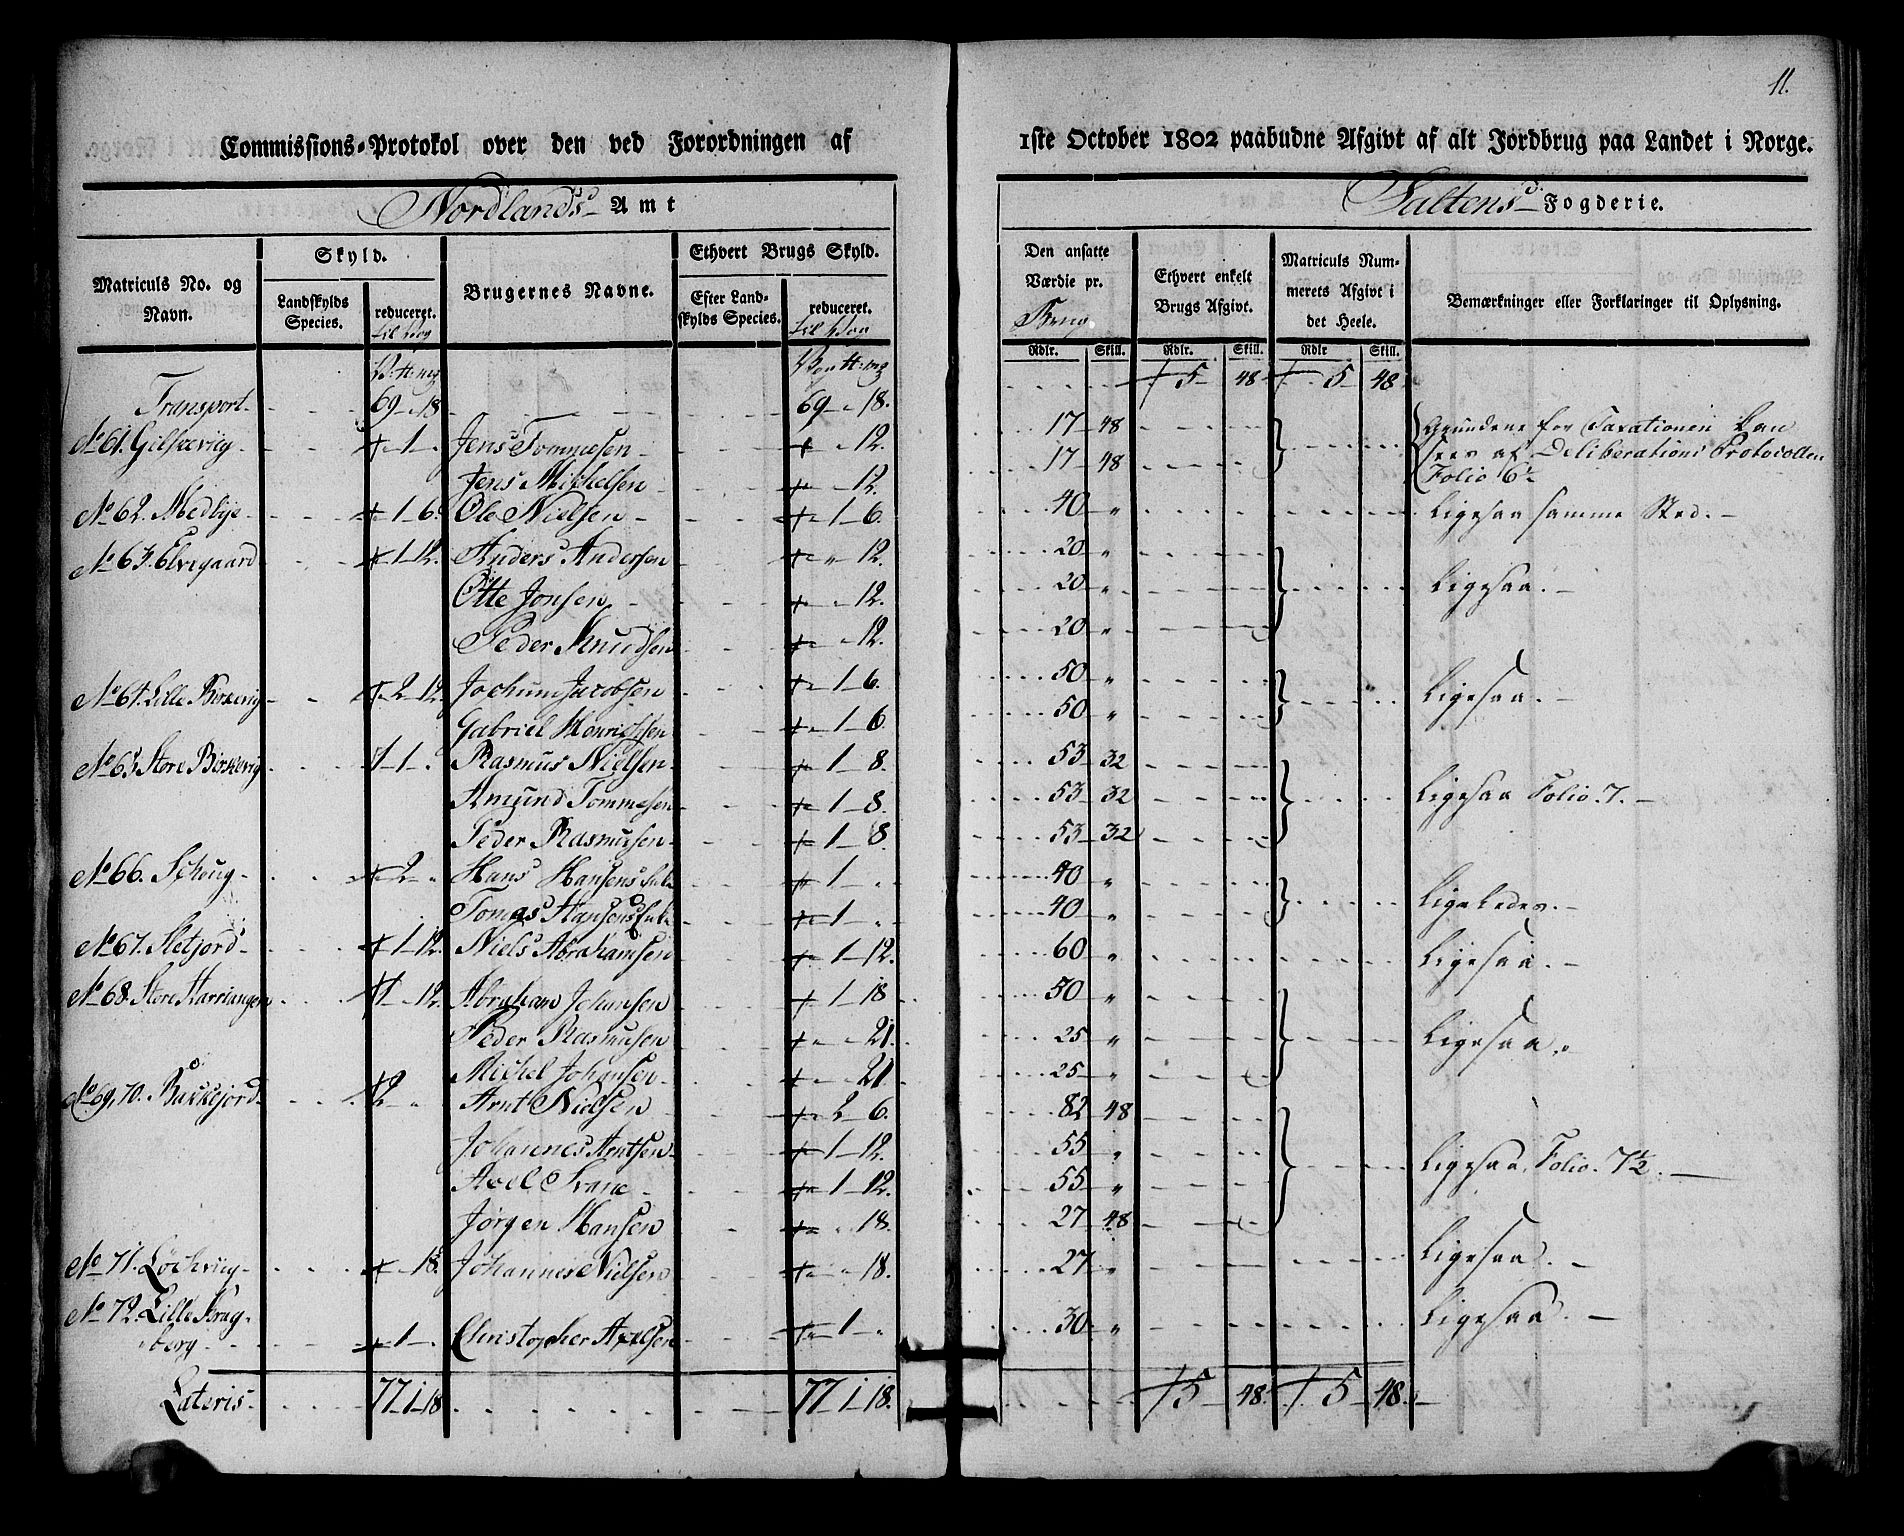 11.
Commissions-Protokol over den ved Forordningen af 1ste October 1802 paabudne Afgivt af alt Jordbrug paa Landet i Norge.
Nordlands Amt
Saltens Fogderie.
Matriculs No. og Navn.
Skyld.
Landskylds Species.
reduceret.
til Vog
Brugernes Navne.
Ethvert Brugs Skyld.
Efter Landskylds Species.
reduceret.
til Vog
Den ansatte Værdie pr.
Ethvert enkelt Brugs Afgivt.
Matriculs Nummerets Afgivt i det Heele.
Bemærkninger eller Forklaringer til Oplysning.
Rdlr. Skill. Rdlr. Skill. Rdlr Skill.
5 48 5 48
Transport 69 18 69 18.
No 61. 1 Jens Tommesen 12. 17 48 Grundene for Taxationen kan
Jens Michelsen 12. 17 48 sees af Deliberations Protocollen
Folio 6
No 62. Medbye 1 6. Ole Nielsen 1 6. 40 " Ligesaa samme Sted.
No 63. Elvegaard 1 12. Anders Andersen " 12. 20 "
Otte Jonsen 12. 20 " Ligesaa.
Peder Knudsen 12. 20 "
No 64. Lille Berkevig 2 12. Jochum Jacobsen 1 6. 50 " Ligesaa.
Gabriel Henrichsen 1 6. 50 "
No 65. Store Birkevig 1 Rasmus Nielsen 1 8. 53 32
Amund Tommesen 1 8. 53 32 Ligesaa Folio. 7.
Peder Rasmusen 1 8. 53 32
No 66. 2 " Hans Hansen 1 " 40 "
Tomas Hansen 1 " 40 " Ligeledes.
No 67. Sletjord 1 12. Niels Abrahamsen 1 12. 60 " Ligesaa.
No 68. Store 1 12. Abraham Johansen 1 18. 50 "
Peder Rasmusen 21. 25 " Ligesaa.
Michel Johansen 21. 25 "
No 69, 70. Bukkejord 2 " Arnt Nielsen 2 6. 82 48
Johannes Arntsen 1 12. 55 " Ligesaa. Folio. 7½.
Axel 1 12. 55 "
Jørgen Hansen 18. 27 48
No 71. 18. Johannes Nielsen 18. 27 " Ligesaa.
No 72. Lille
berg 1 Christopher Axelsen 1 " 30 " Ligesaa.
Lateris 77 1 18 77 1 18. 5 48. 5 48.